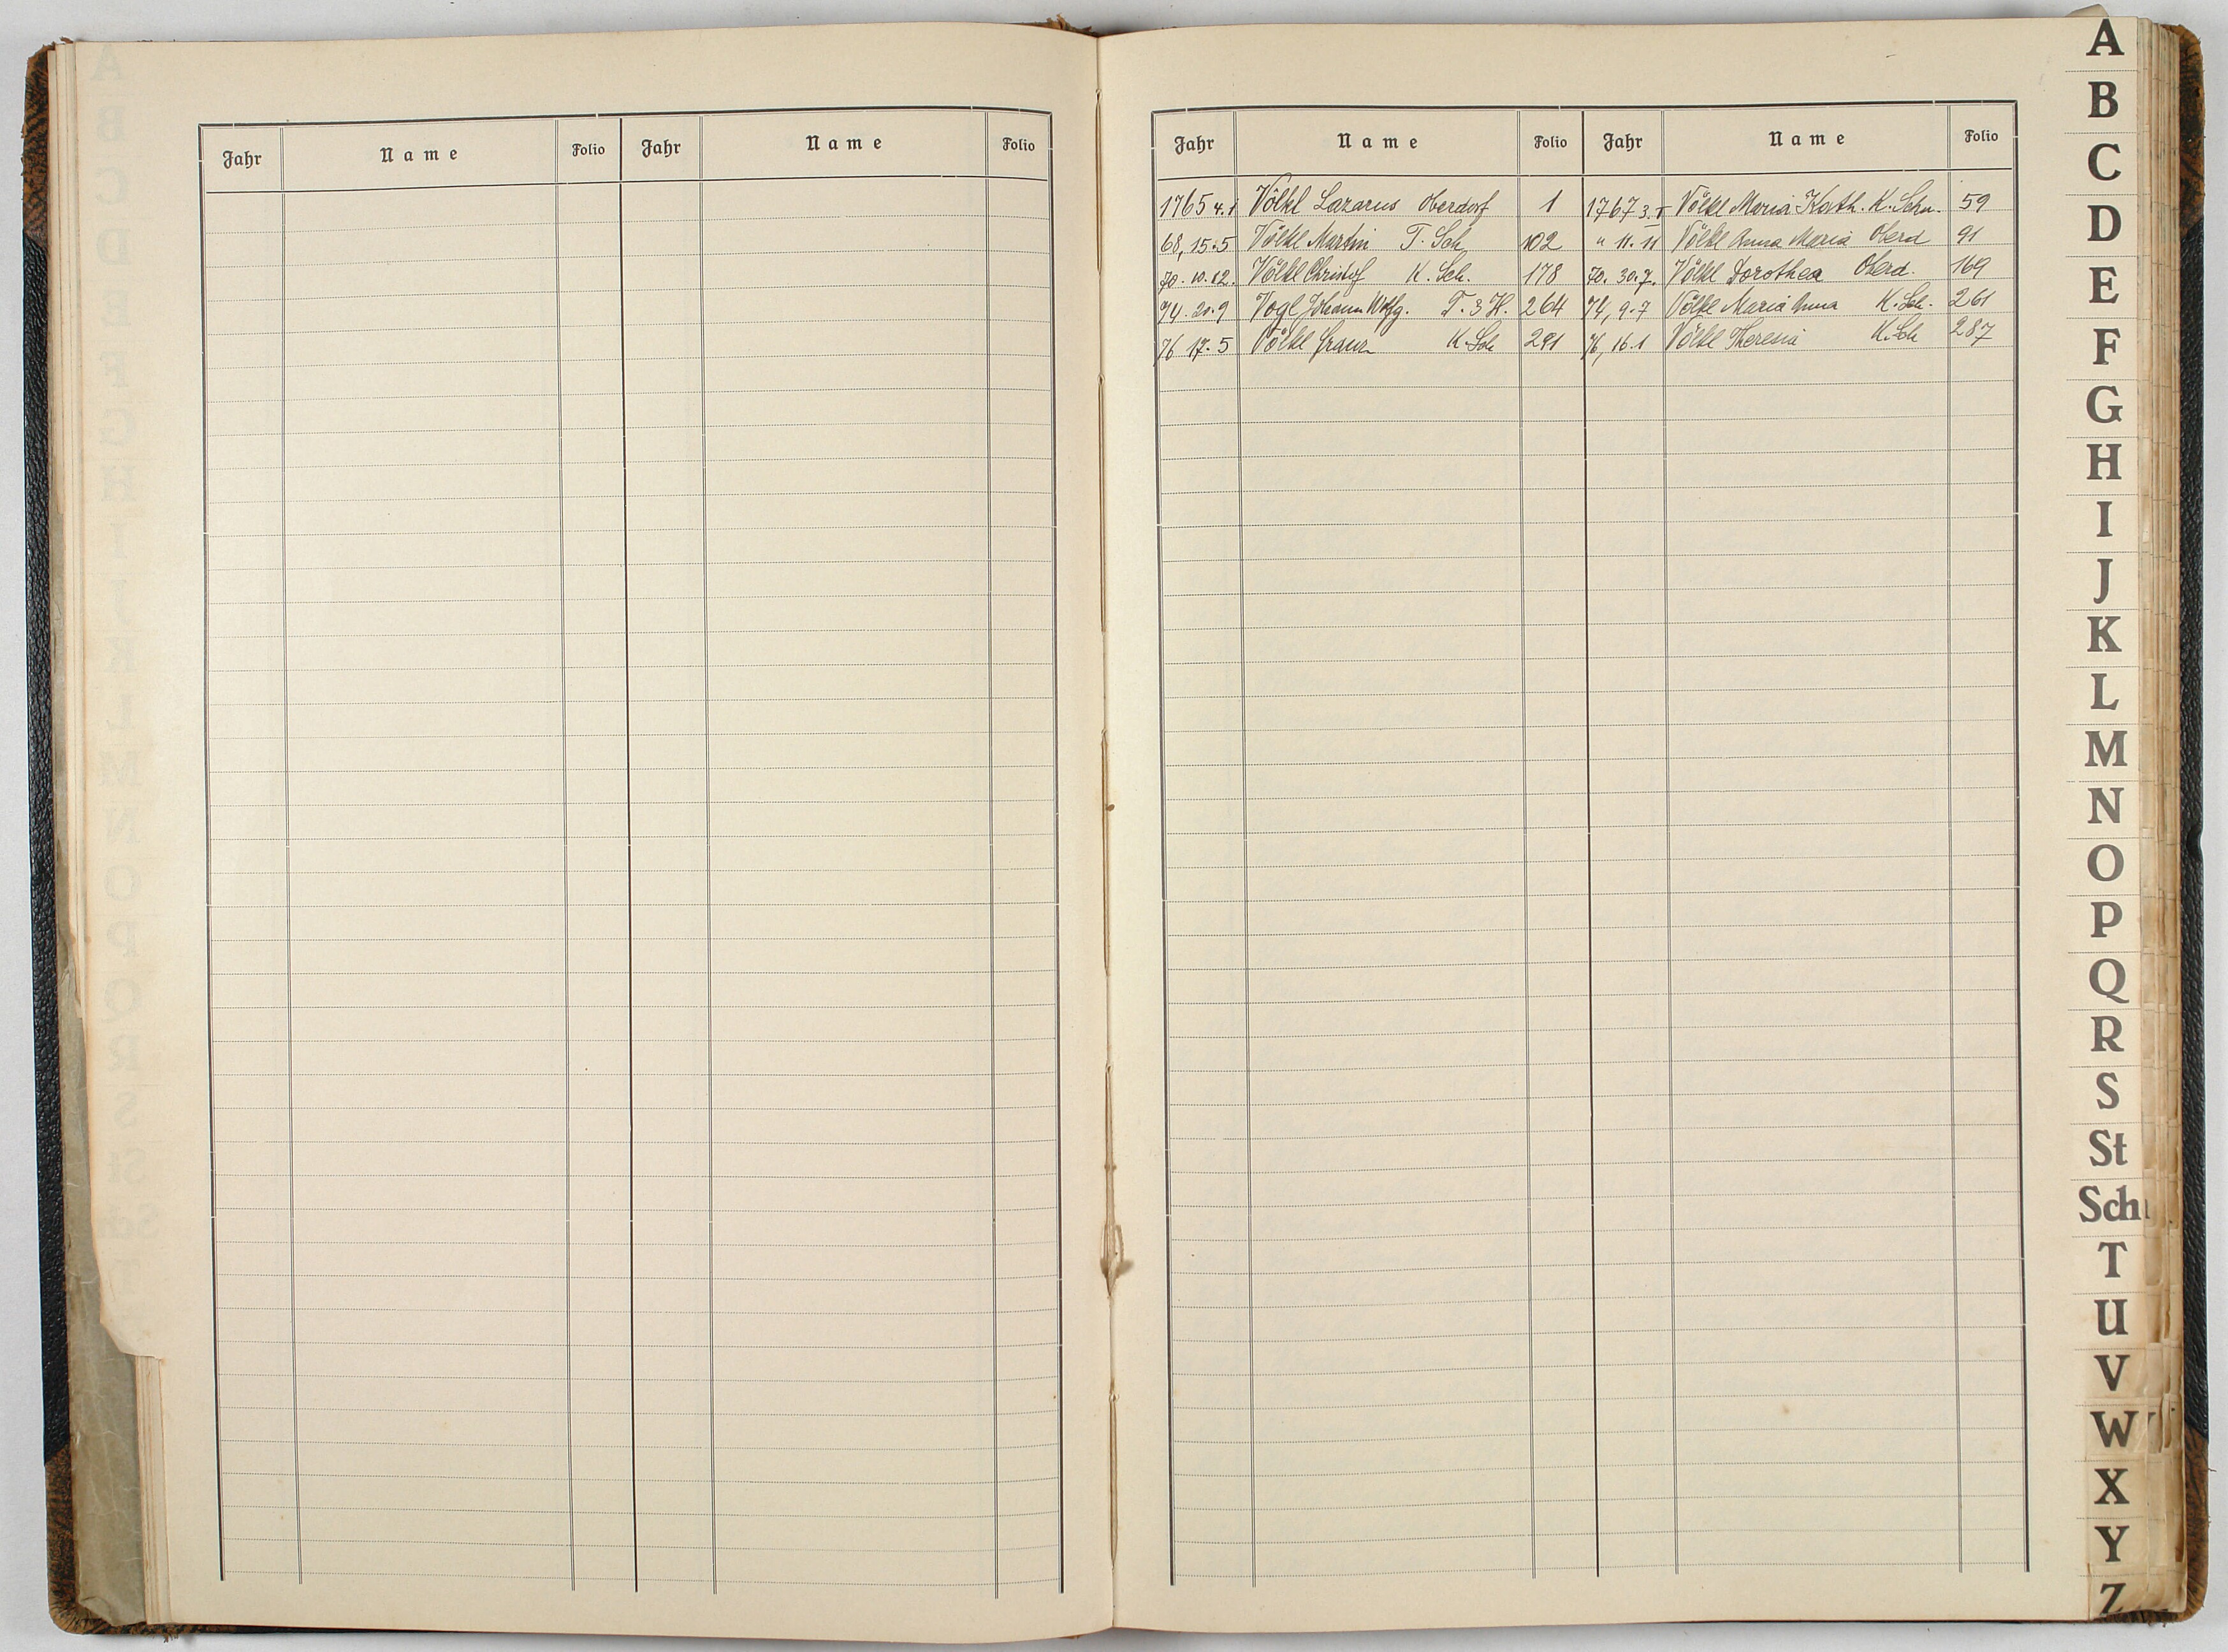 Jahr Name Folio Jahr Name Folio
Jahr Name Folio Jahr Name Folio
1765 4.1 Völkl Lazarus Oberdorf 1 1767 3.I Völkl Maria Kath. K. Schn. 59
68, 15.5 Völkl Martin T. Sch 102 " 11.11 Völkl Anna Maria Oberd 91
70. 10.12. Völkl Christof K. Sch. 178 70. 30.7. Völkl Dorothea Oberd. 169
74. 20.9 Vogl Johann Wolfg. T. 3 H. 264 74, 9.7 Völkl Maria Anna K. Sch. 261
76 17.5 Völkl Franz K. Sch 291 76, 16.1 Völkl Theresia K. Sch 287
A
B
C
D
E
F
G
H
I
J
K
L
M
N
O
P
Q
R
S
St
Sch
T
U
V
W
X
Y
Z